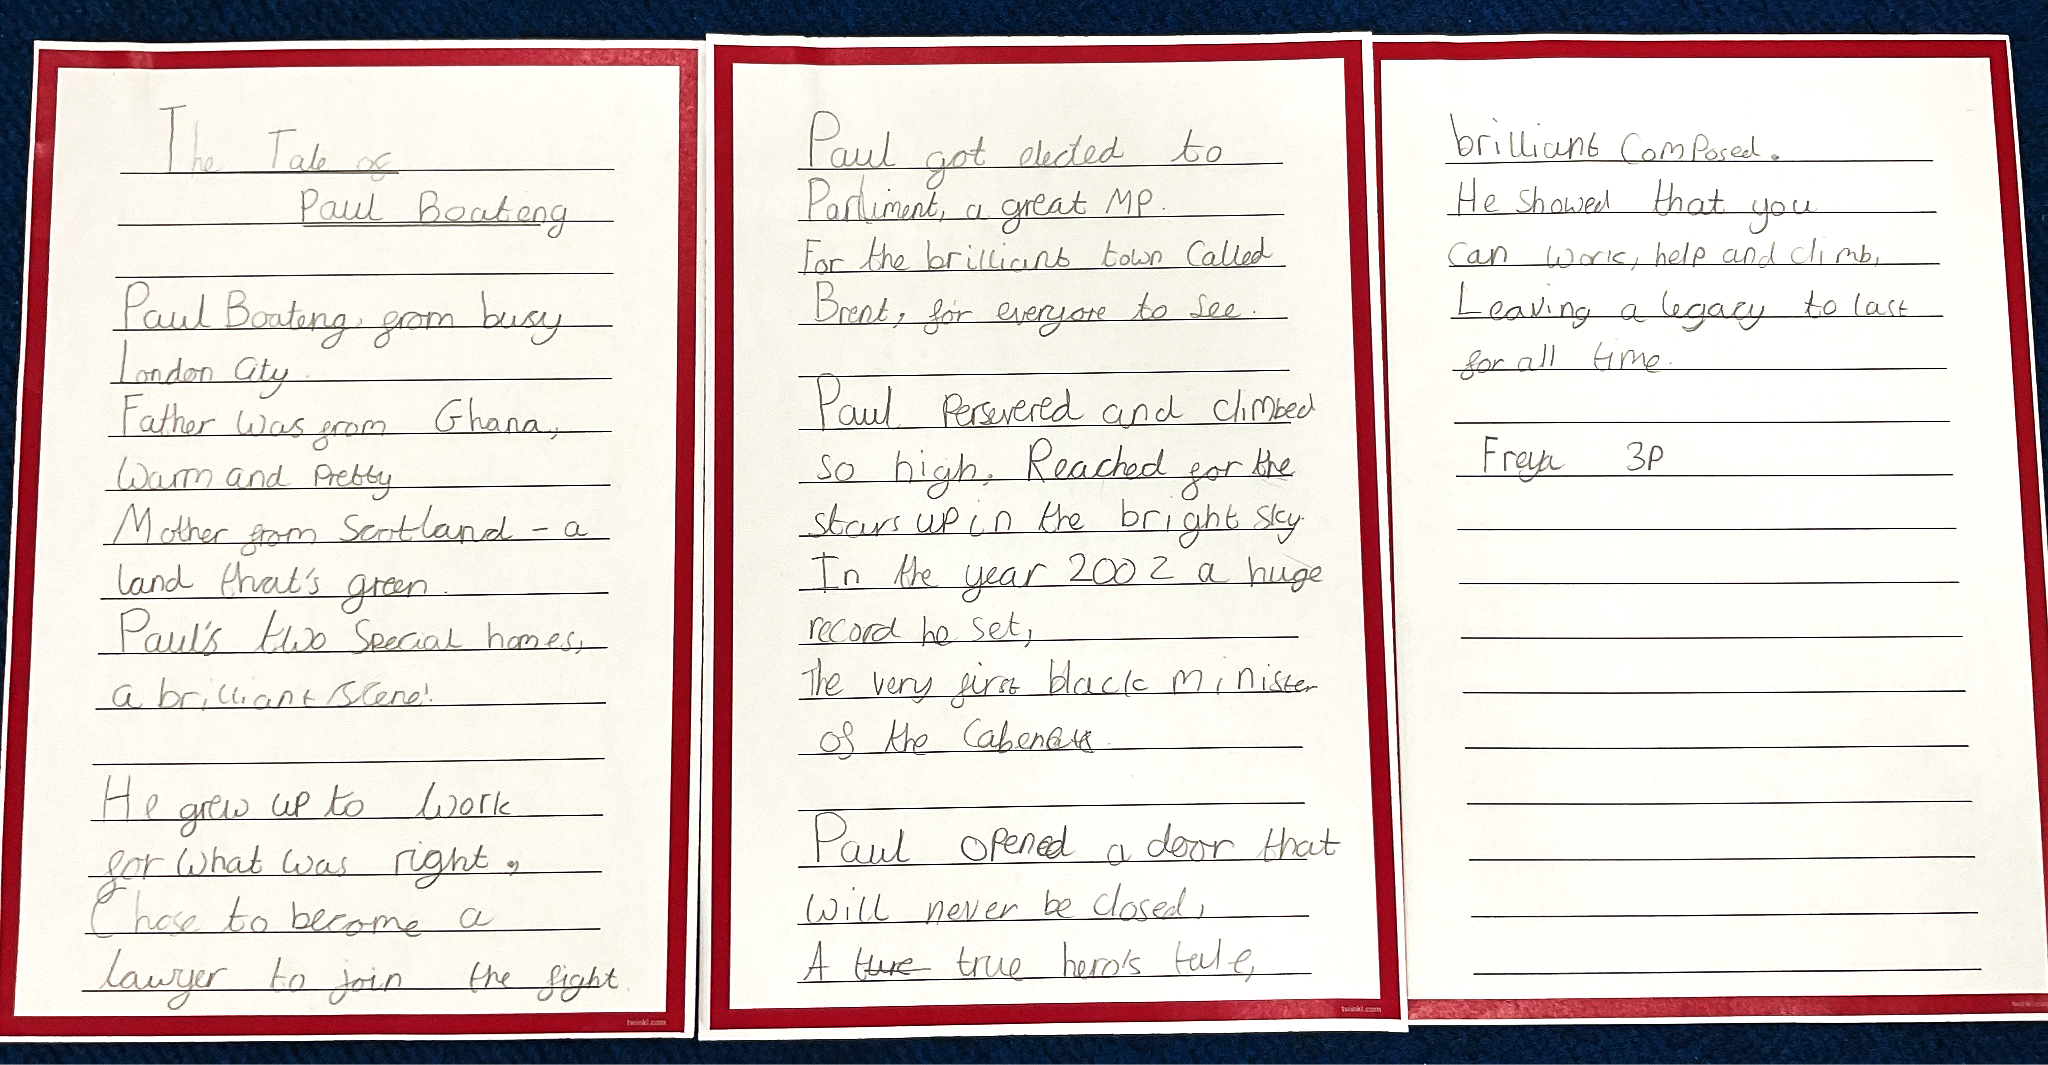 The Tale of
Paul Boateng
Paul Boateng, from busy
London City.
Father was from Ghana,
warm and pretty
Mother from Scotland - a
land that's green.
Paul's two special homes,
a brilliant scene!
He grew up to work
for what was right,
Chose to become a
lawyer to join the fight.
twinkl.com
Paul got elected to
Parliment, a great MP.
For the brilliant town called
Brent, for everyone to see.
Paul persevered and climbed
so high. Reached for the
stars up in the bright sky.
In the year 2002 a huge
record he set,
The very first black minister
of the
Paul opened a door that
will never be closed,
A ture true hero's tale,
twinkl.com
brilliant composed.
He showed that you
can work, help and climb,
Leaving a legacy to last
for all time.
Freya 3P
twinkl.com